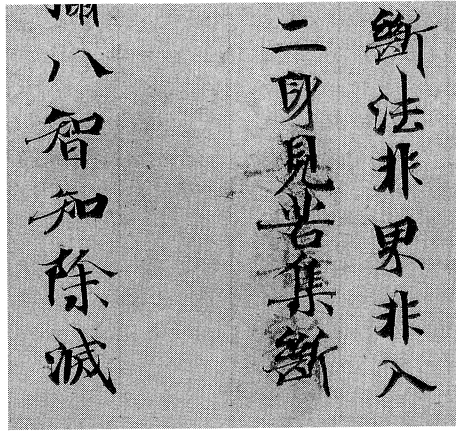 斷法非界非入
二身見苦集斷
八智知除滅